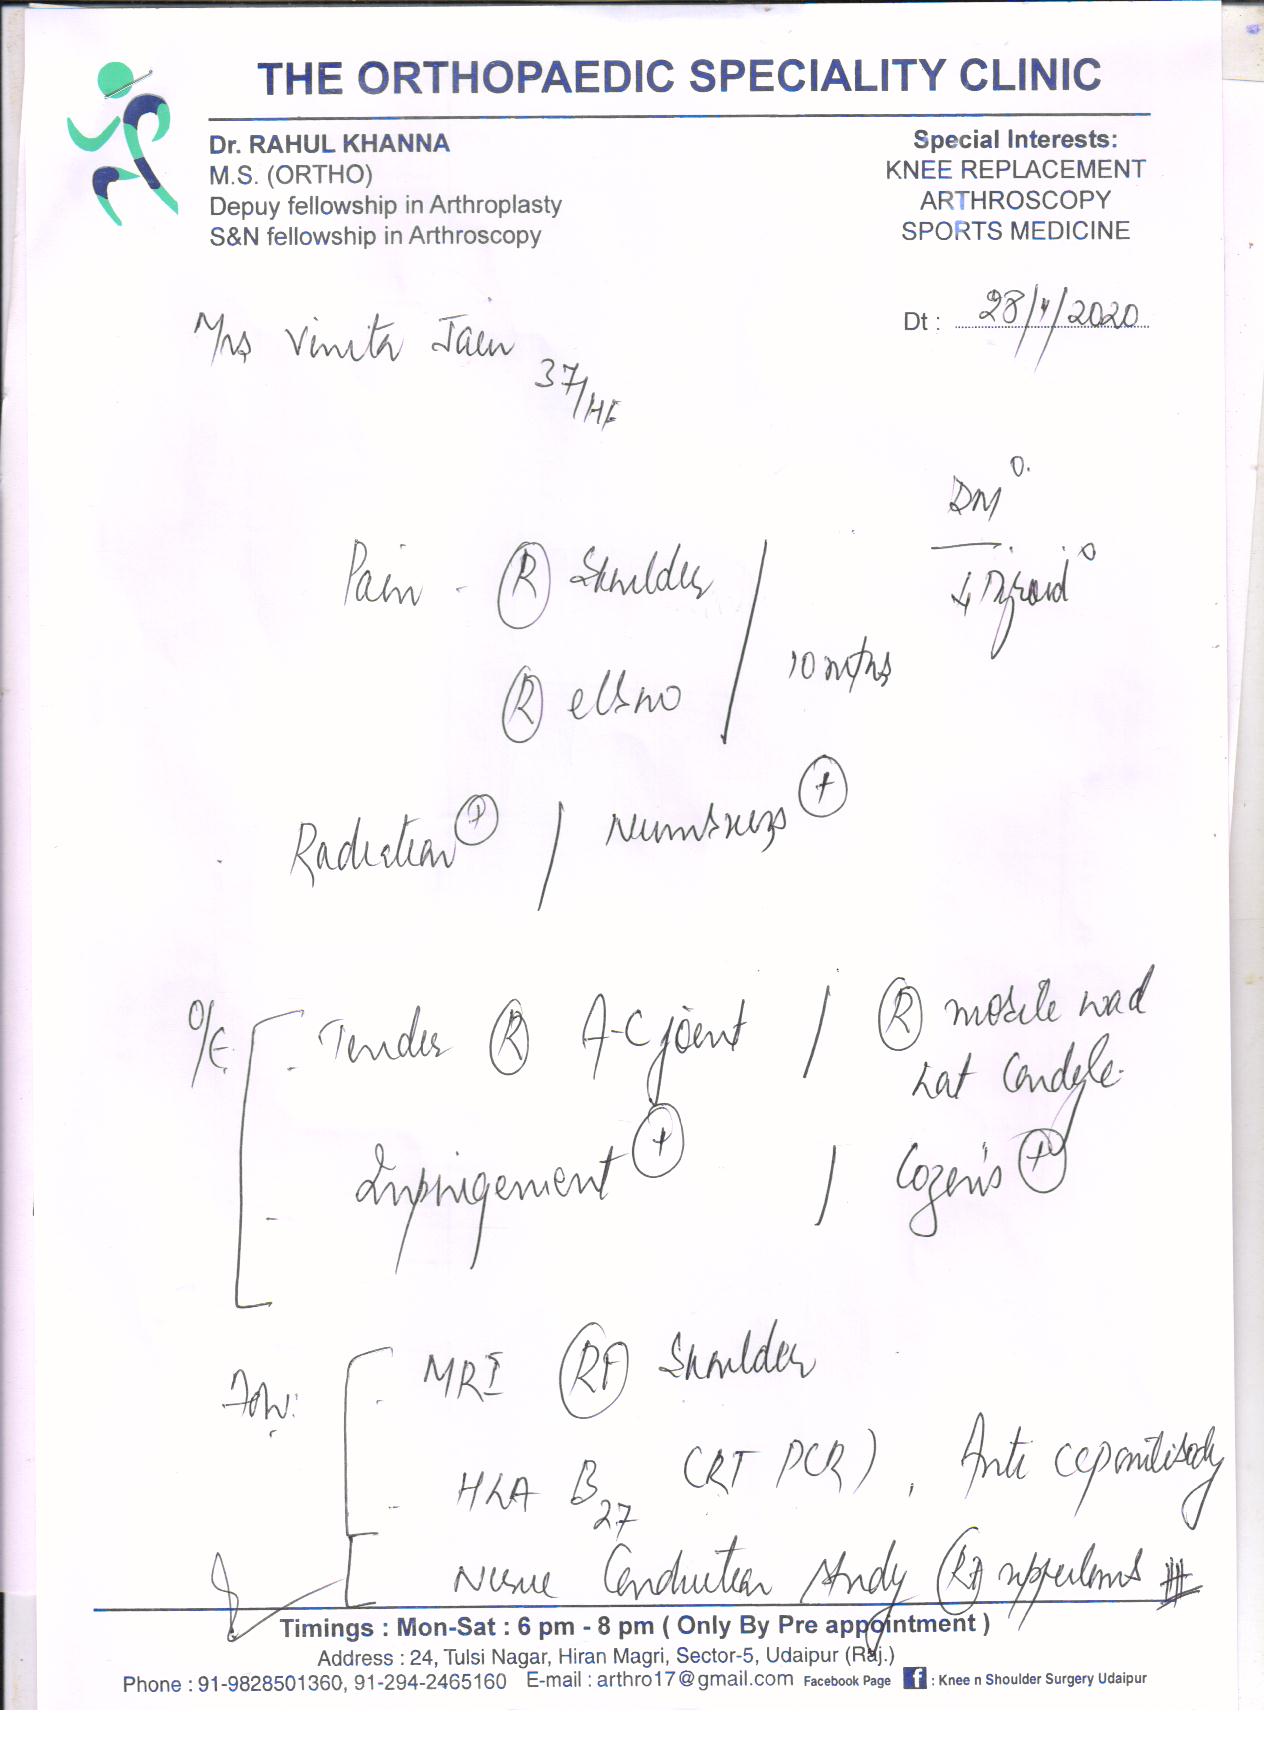 THE ORTHOPAEDIC SPECIALITY CLINIC
Dr. RAHUL KHANNA
M.S. (ORTHO)
Depuy fellowship in Arthroplasty
S&N fellowship in Arthroscopy
Special Interests:
KNEE REPLACEMENT
ARTHROSCOPY
SPORTS MEDICINE
Dt : 28/4/2020
Mrs Vinita Jain
37/
DM 0
Thyroid 0
Pain - R Shoulder
R elbow
10 mths
Radiation + / Numbness +
O/E
- Tender R A-C joint / R mobile wad
Lat Condyle
- Impingement + / Cozen's +
Adv:
- MRI Rt Shoulder
- HLA B27 (RT PCR), Anti ccp antibody
Nerve Conduction Study Rt upperlimb
Timings : Mon-Sat : 6 pm - 8 pm ( Only By Pre appointment )
Address : 24, Tulsi Nagar, Hiran Magri, Sector-5, Udaipur (Raj.)
Phone : 91-9828501360, 91-294-2465160 E-mail : arthro17@gmail.com Facebook Page f : Knee n Shoulder Surgery Udaipur